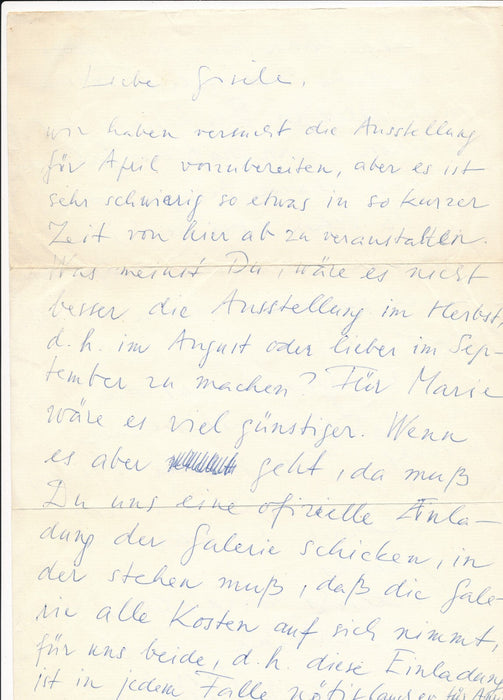 Liebe Gisela,
wir haben versucht die Ausstellung
für April vorzubereiten, aber es ist
sehr schwierig so etwas in so kurzer
Zeit von hier ab zu veranstalten.
Was meinst Du, wäre es nicht
besser die Ausstellung im Herbst,
d.h. im August oder lieber im Sep-
tember zu machen? Für Marie
wäre es viel günstiger. Wenn
es aber geht, da muß
Du uns eine ofizielle Einla-
dung der Galerie schicken, in
der stehen muß, daß die Gale-
rie alle Kosten auf sich nimmt,
für uns beide, d.h. diese Einladung
ist in jedem Falle